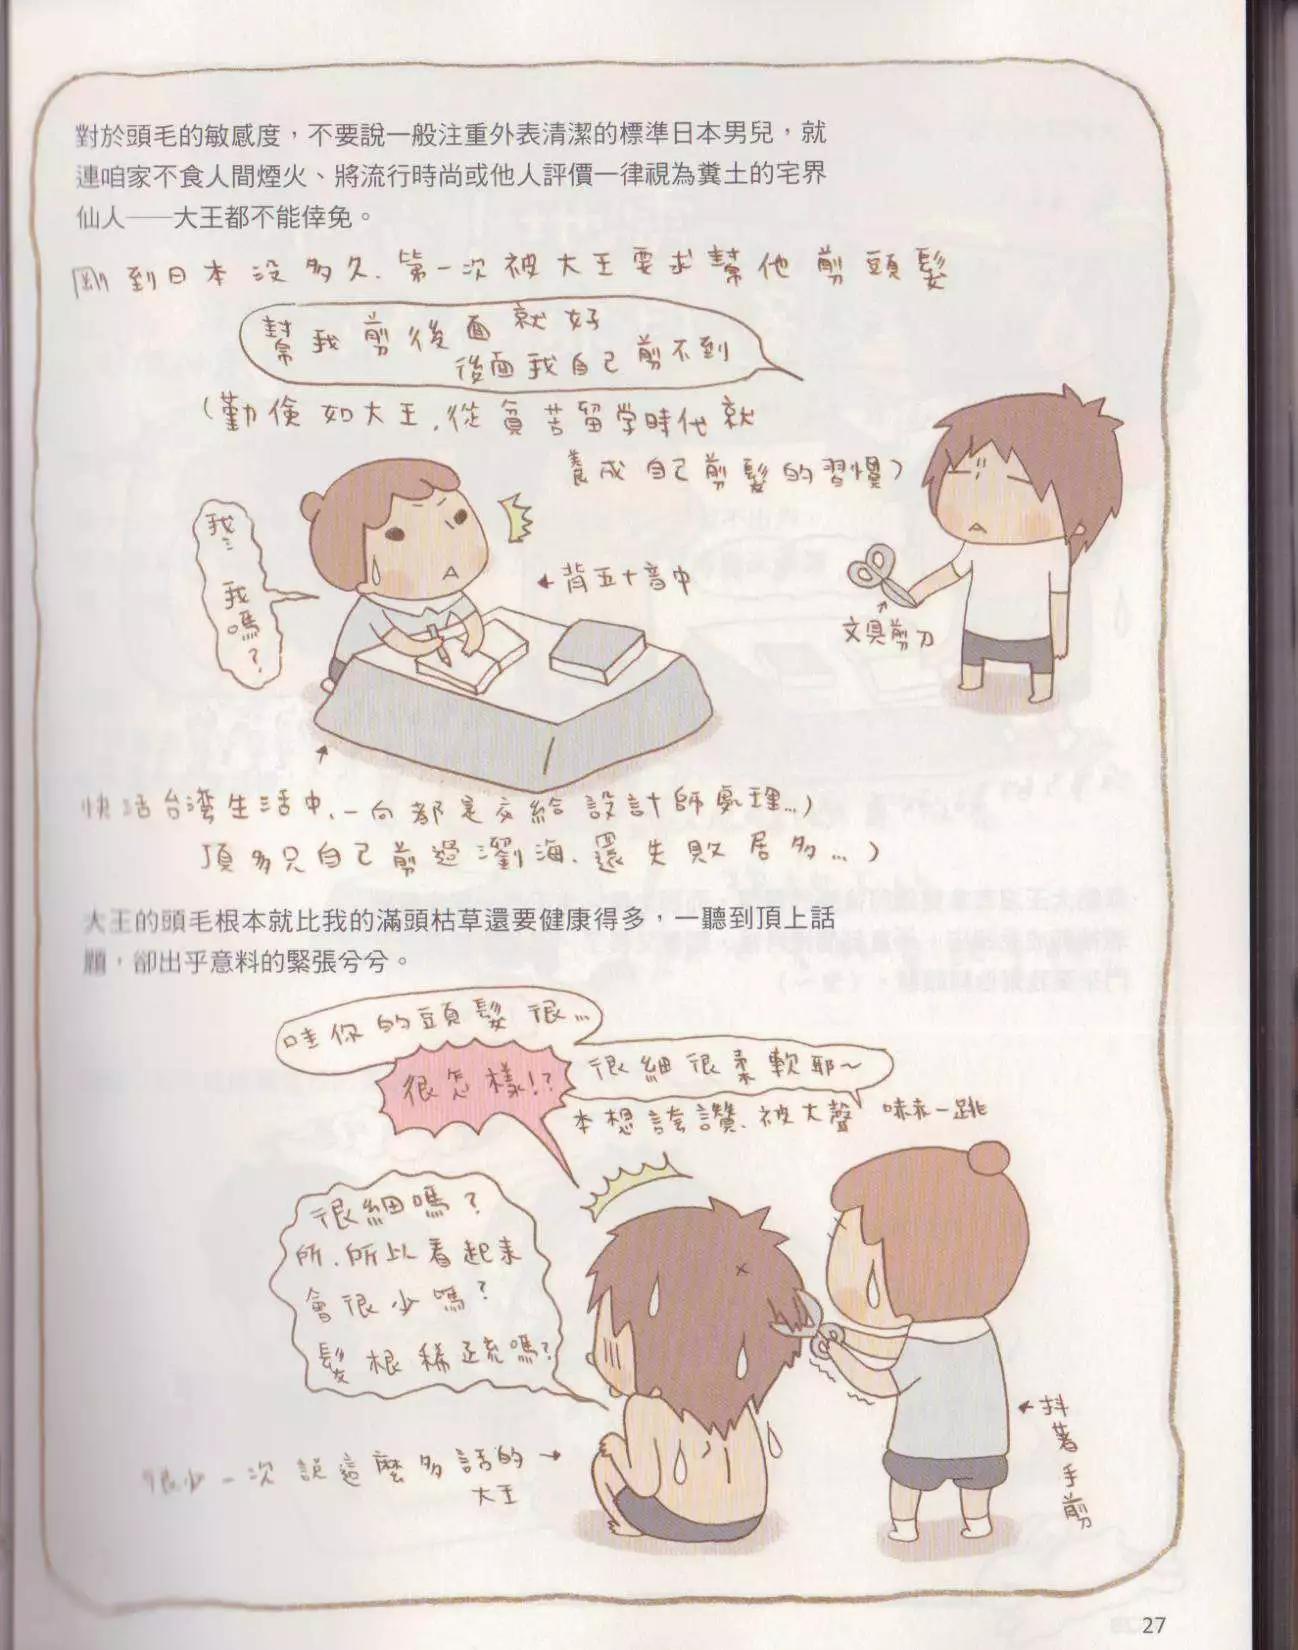 對於頭毛的敏感度，不要說一般注重外表清潔的標準日本男兒，就
連咱家不食人間煙火、將流行時尚或他人評價一律視為糞土的宅界
仙人──大王都不能倖免。
剛到日本沒多久、第一次被大王要求幫他剪頭髮
幫我剪後面就好
後面我自己剪不到
（勤儉如大王，從貧苦留学時代就
養成自己剪髮的習慣）
我…
我嗎？
←背五十音中
文具剪刀
快活台灣生活中、一向都是交給設計師處理…）
頂多只自己剪過瀏海、還失敗居多…）
大王的頭毛根本就比我的滿頭枯草還要健康得多，一聽到頂上話
題，卻出乎意料的緊張兮兮。
哇你的頭髮很…
很怎樣!?
很細很柔軟耶～
本想誇讚、被大聲嚇一跳
很細嗎？
所、所以看起來
會很少嗎？
髮根稀疏嗎？
很少一次說這麼多話的→
大王
←抖著手剪
27